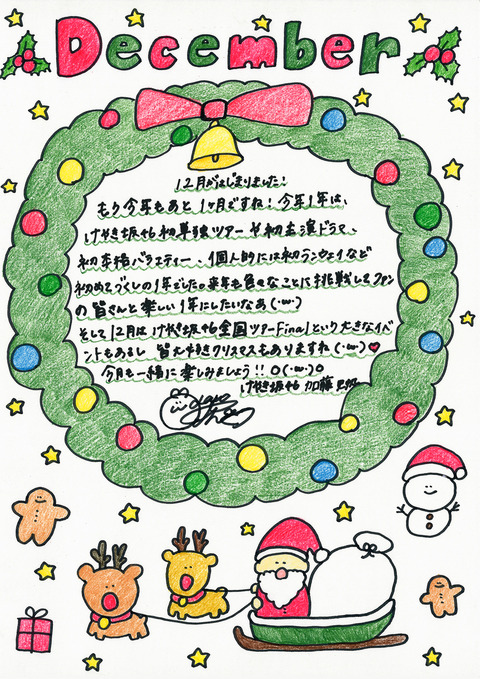 December
12月がはじまりました!
もう今年もあと1ヶ月ですね!今年1年は、
けやき坂46初単独ツアーや初主演ドラマ、
初本格バラエティー、個人的には初ランウェイなど
初めてづくしの1年でした。来年も色々なことに挑戦してファン
の皆さんと楽しい1年にしたいなあ(・ω・)
そして12月はけやき坂46全国ツアーFinalという大きなイベ
ントもあるし 皆大好きクリスマスもありますね(・ω・)♥
今月も一緒に楽しみましょう!!○(・ω・)○
けやき坂46 加藤史帆